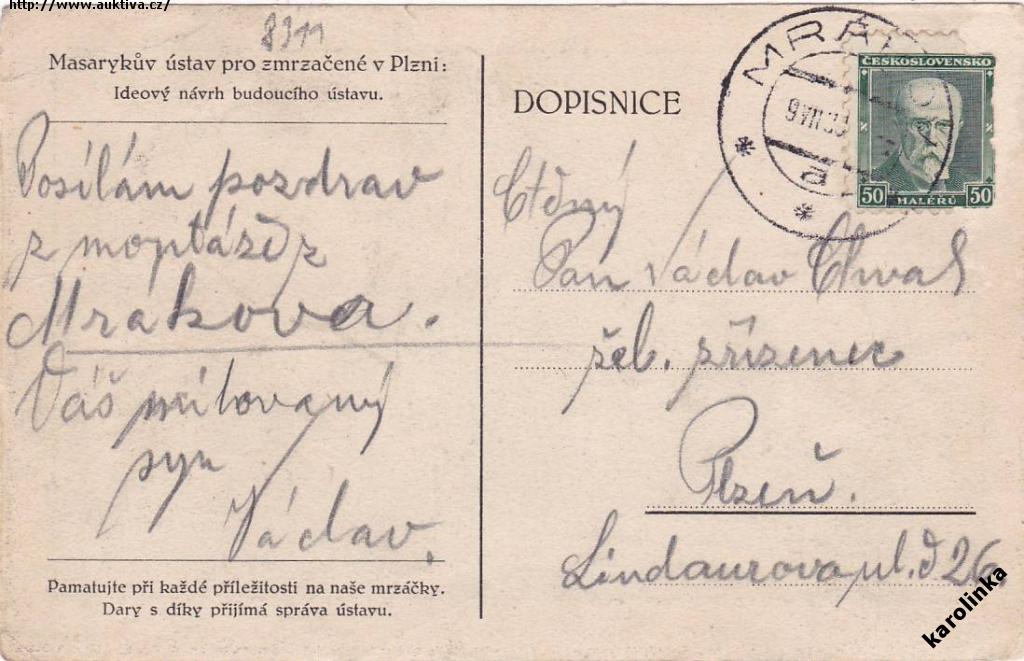 http://www.auktiva.cz/
8311
Masarykův ústav pro zmrzačené v Plzni:
Ideový návrh budoucího ústavu.
Posílám pozdrav
z montáže z
Mrákova.
Váš milovaný
syn
Václav.
Pamatujte při každé příležitosti na naše mrzáčky.
Dary s díky přijímá správa ústavu.
DOPISNICE
MRÁKOV
9 VII 33
a
ČESKOSLOVENSKO
50 50
HALÉŘŮ
Ctěný
Pan Václav Chval
žel. zřízenec
Plzeň.
Lindaurova ul. č 26
karolinka